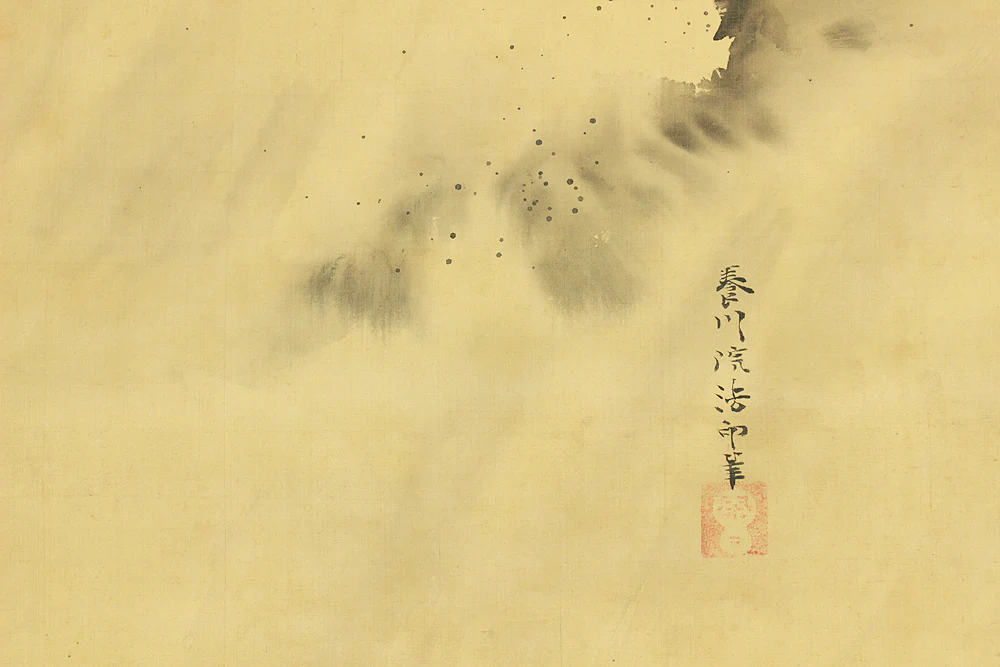 養川院法印筆